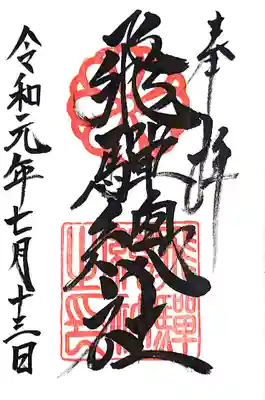 奉拝
飛騨総社
令和元年七月十三日